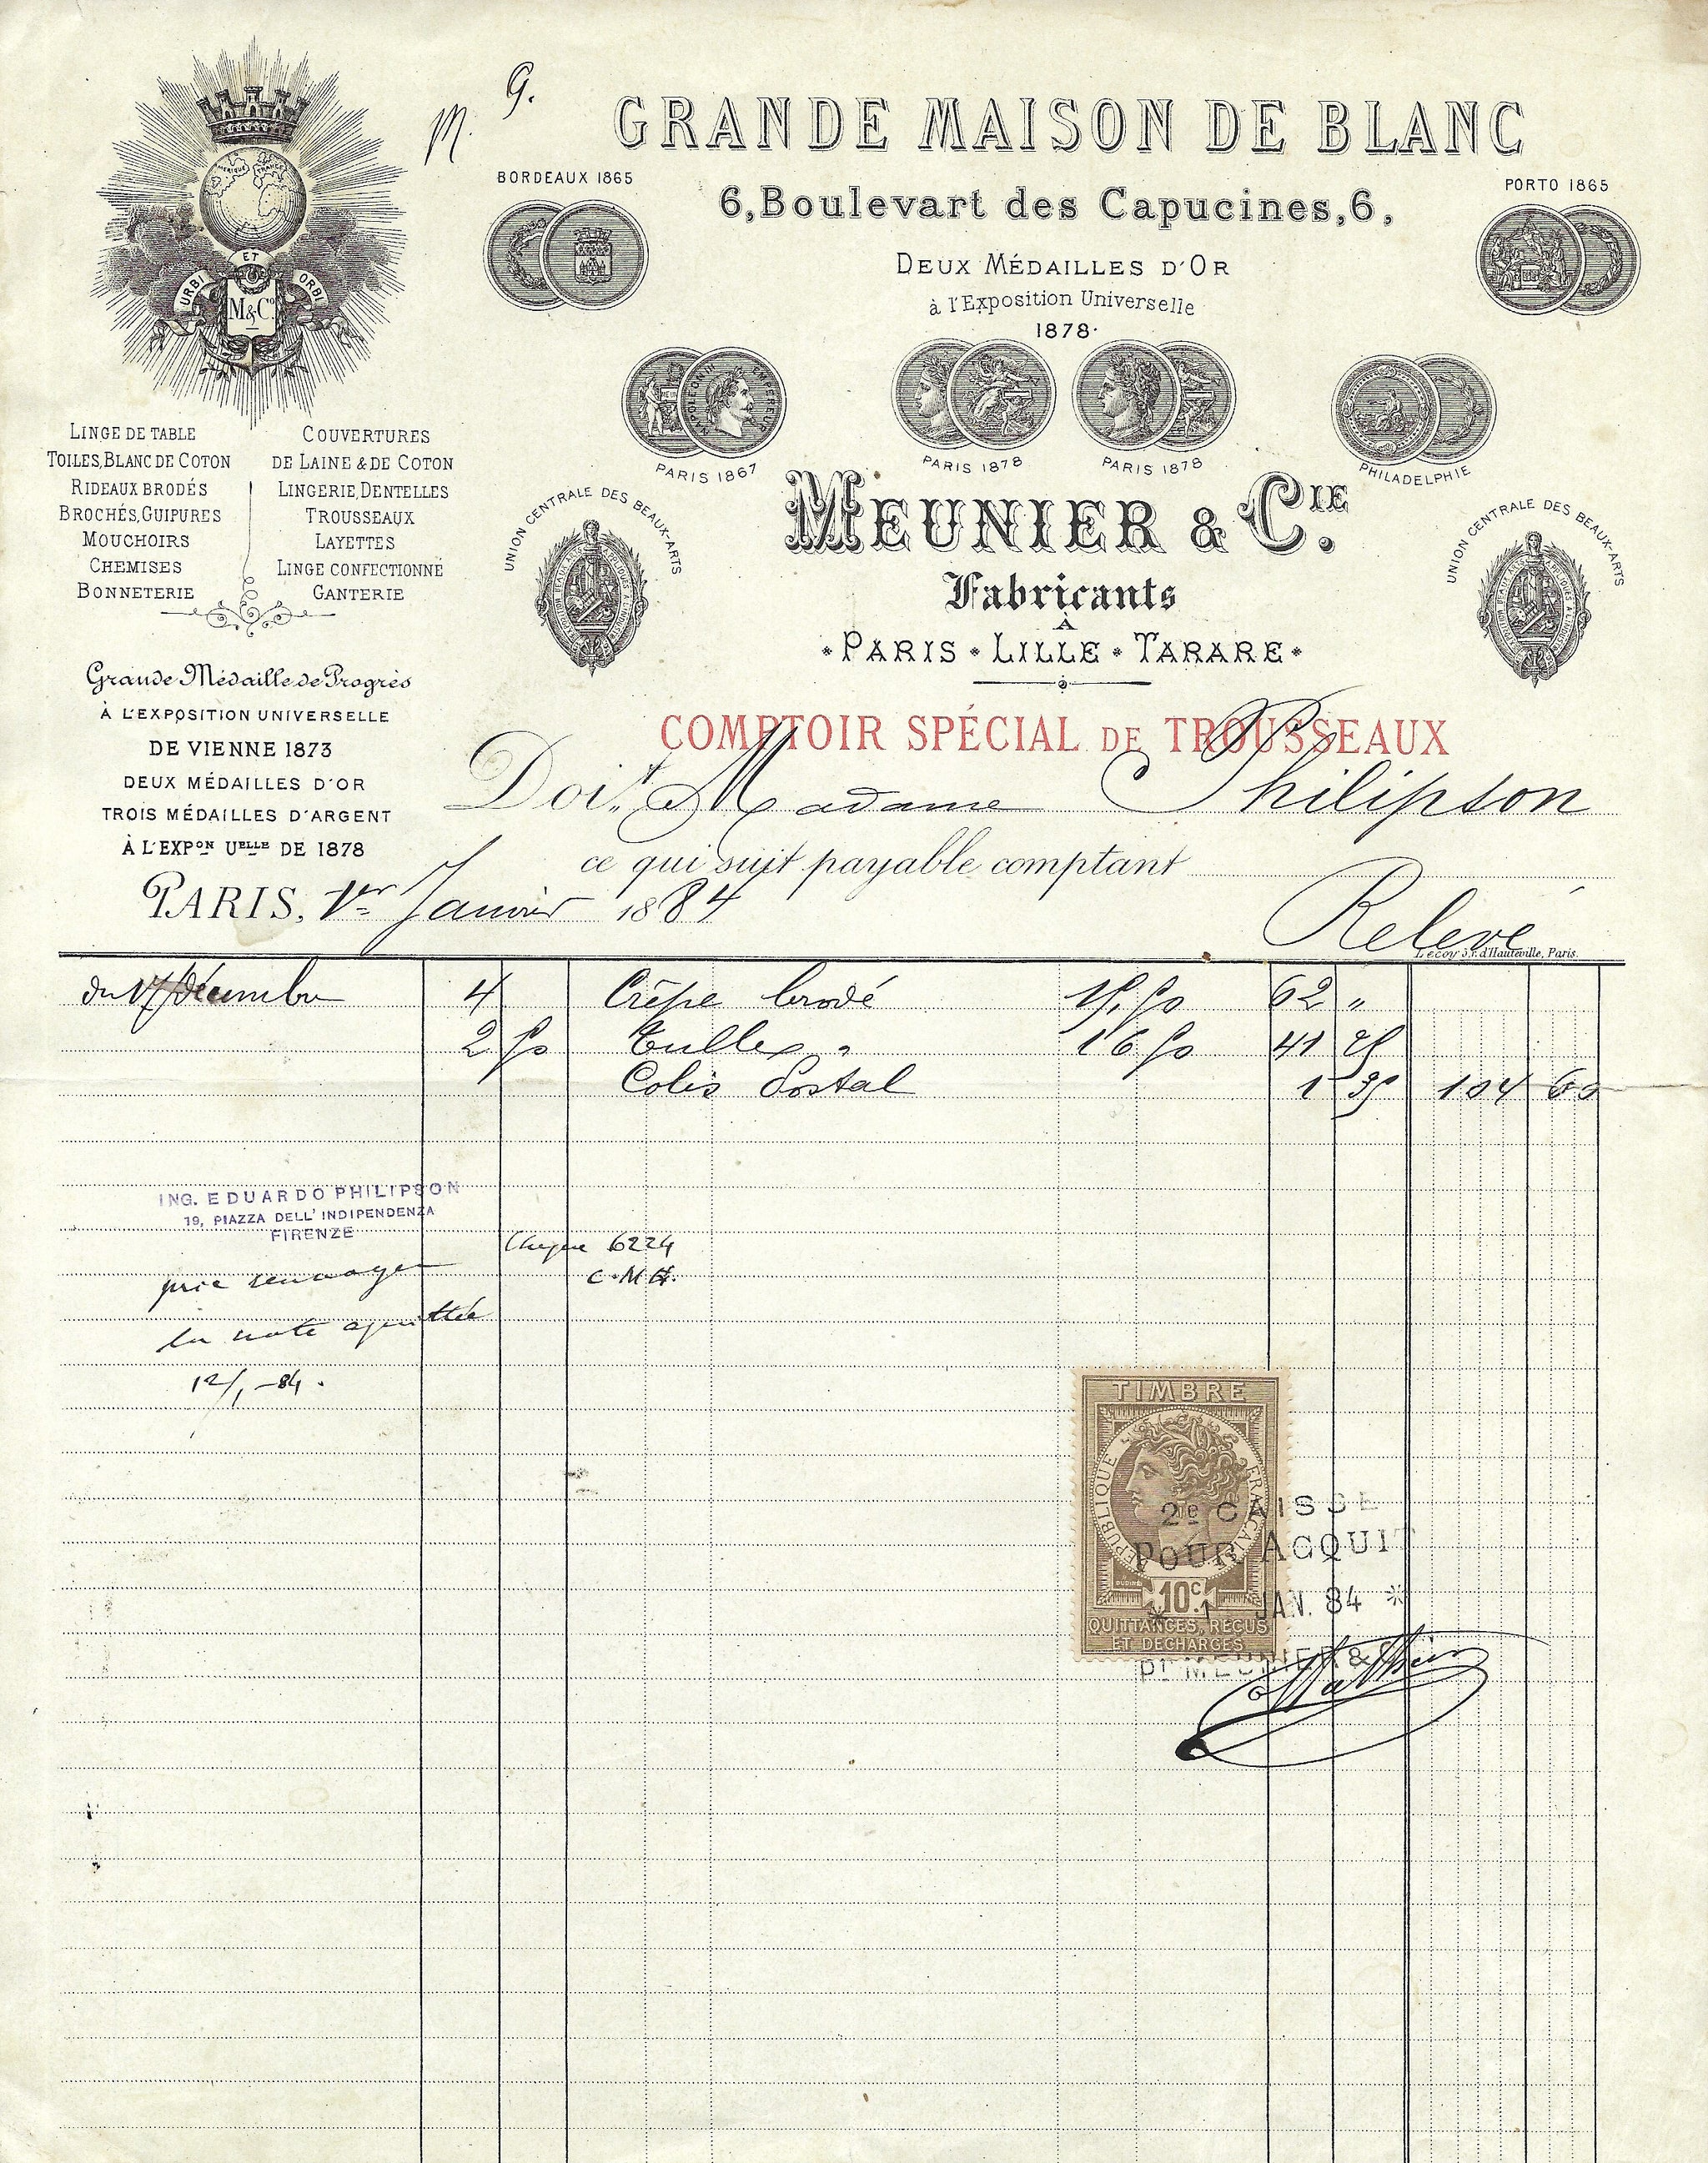 M. G.
GRANDE MAISON DE BLANC
BORDEAUX 1865
PORTO 1865
6, Boulevart des Capucines, 6,
DEUX MÉDAILLES D'OR
à l'Exposition Universelle
1878.
URBI ET ORBI
M & Cº
NAPOLEON III EMPEREUR
PARIS 1867
PARIS 1878
PARIS 1878
PHILADELPHIE
LINGE DE TABLE
TOILES, BLANC DE COTON
RIDEAUX BRODÉS
BROCHÉS, GUIPURES
MOUCHOIRS
CHEMISES
BONNETERIE
COUVERTURES
DE LAINE & DE COTON
LINGERIE, DENTELLES
TROUSSEAUX
LAYETTES
LINGE CONFECTIONNÉ
GANTERIE
UNION CENTRALE DES BEAUX-ARTS
MEUNIER & CIE.
UNION CENTRALE DES BEAUX-ARTS
Fabricants
À
PARIS * LILLE * TARARE
Grande Médaille de Progrès
À L'EXPOSITION UNIVERSELLE
DE VIENNE 1873
DEUX MÉDAILLES D'OR
TROIS MÉDAILLES D'ARGENT
À L'EXPON UELLE DE 1878
COMPTOIR SPÉCIAL DE TROUSSEAUX
Doit Madame Philipson
ce qui suit payable comptant
PARIS, 1er Janvier 1884
Relevé
Lecoy 35 r. d'Hauteville, Paris.
du 17 Décembre 4 Crêpe brodé 15,50 62 "
2 50 Tulle " 16 50 41 25
Colis Postal 1 35 104 60
ING. EDUARDO PHILIPSON
19, PIAZZA DELL' INDIPENDENZA
FIRENZE
Cheque 6224
prie renvoyer
la note aquittée
12/1 -84.
TIMBRE
RÉPUBLIQUE FRANÇAISE
10 C.
QUITTANCES, REÇUS
ET DÉCHARGES
2e CAISSE
POUR ACQUIT
* 1 JAN. 84 *
Pr MEUNIER &